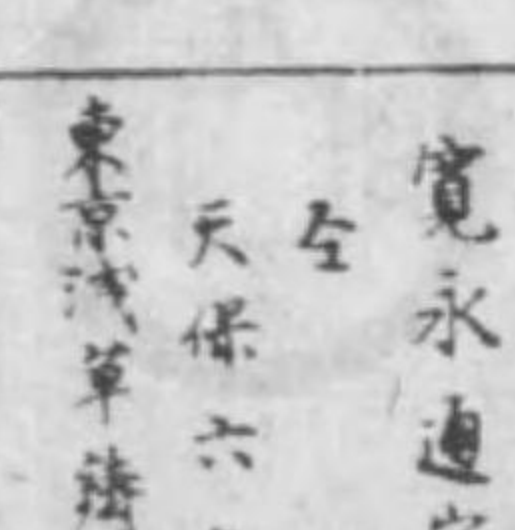 寛永通
仝
天保六
東京浅草